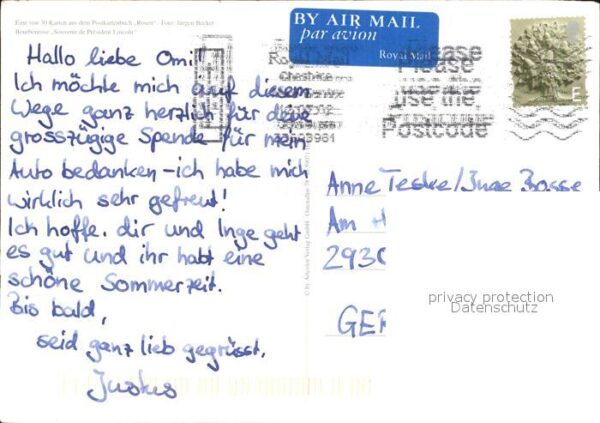 Eine von 30 Karten aus dem Postkartenbuch „Rosen“ · Foto: Jürgen Becker
Bourbonrose „Souvenir de Président Lincoln“
BY AIR MAIL
par avion
Royal Mail
Royal Mail
Cheshire
Please
use the
Postcode
E
Hallo liebe Omi!
Ich möchte mich auf diesem
Wege ganz herzlich für deine
grosszügige Spende für mein
Auto bedanken – ich habe mich
wirklich sehr gefreut!
Ich hoffe, dir und Inge geht
es gut und ihr habt eine
schöne Sommerzeit.
Bis bald,
seid ganz lieb gegrüsst,
Anne Teske/Inge Bosse
Am
2930
GER
privacy protection
Datenschutz